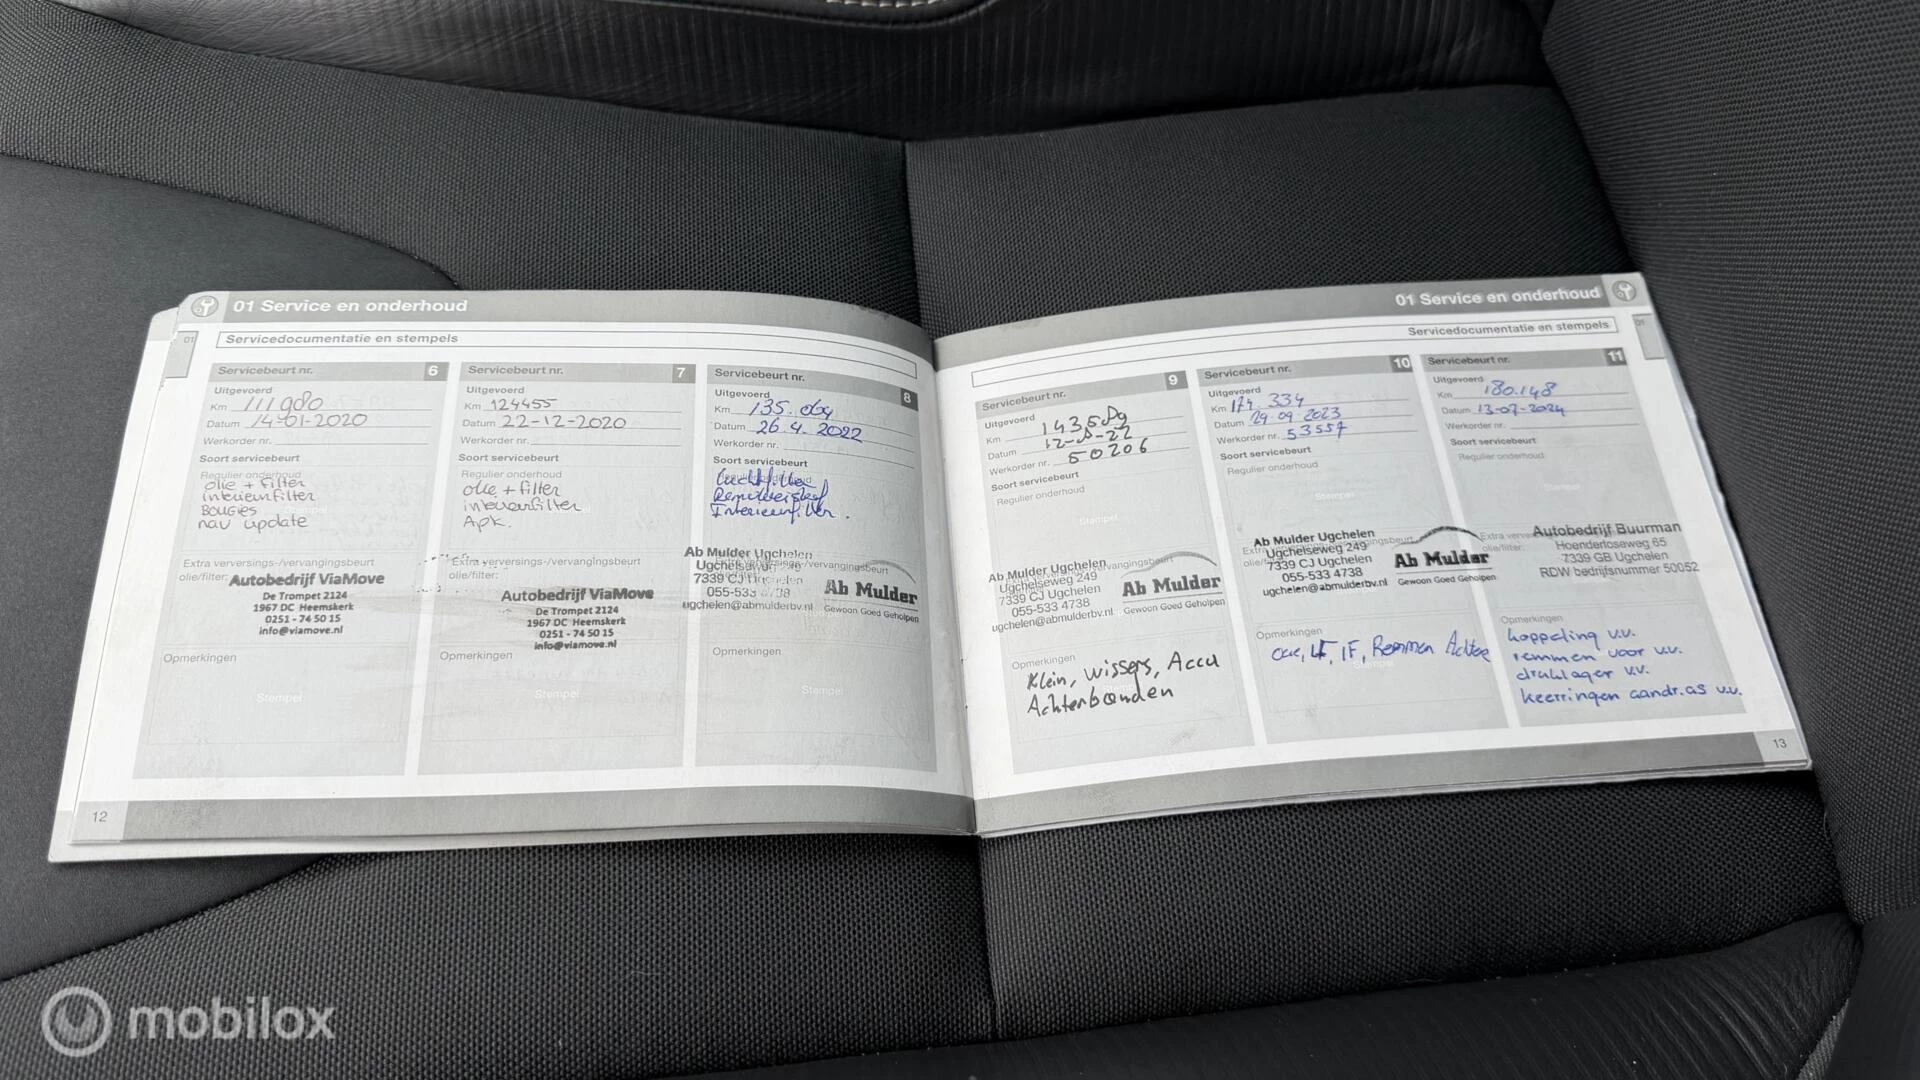 01 Service en onderhoud
01
Servicedocumentatie en stempels
Servicebeurt nr. 6
Uitgevoerd
Km 111980
Datum 14-01-2020
Werkorder nr.
Soort servicebeurt
Regulier onderhoud
olie + filter
interieurfilter
Bougies
nav update
Extra verversings-/vervangingsbeurt
olie/filter:
Autobedrijf ViaMove
De Trompet 2124
1967 DC Heemskerk
0251 - 74 50 15
info@viamove.nl
Opmerkingen
Stempel
Servicebeurt nr. 7
Uitgevoerd
Km 124455
Datum 22-12-2020
Werkorder nr.
Soort servicebeurt
Regulier onderhoud
olie + filter
interieurfilter
Apk.
Extra verversings-/vervangingsbeurt
olie/filter:
Autobedrijf ViaMove
De Trompet 2124
1967 DC Heemskerk
0251 - 74 50 15
info@viamove.nl
Opmerkingen
Stempel
Servicebeurt nr. 8
Uitgevoerd
Km 135.
Datum 26.4.2022
Werkorder nr.
Soort servicebeurt
Interieurfilter.
Ab Mulder Ugchelen
7339 CJ Ugchelen
ugchelen@abmulderbv.nl
Ab Mulder
Gewoon Goed Geholpen
Opmerkingen
Stempel
12
01 Service en onderhoud
01
Servicedocumentatie en stempels
Servicebeurt nr. 9
Uitgevoerd
Km
Datum
Werkorder nr. 50206
Soort servicebeurt
Regulier onderhoud
Stempel
Ab Mulder Ugchelen
Ugchelseweg 249
7339 CJ Ugchelen
055-533 4738
ugchelen@abmulderbv.nl
Ab Mulder
Gewoon Goed Geholpen
Opmerkingen
Klein, wissers, Accu
Achterbanden
Servicebeurt nr. 10
Uitgevoerd
Km 174.334
Datum 29.09.2023
Werkorder nr. 53557
Soort servicebeurt
Regulier onderhoud
Stempel
Ab Mulder Ugchelen
Ugchelseweg 249
7339 CJ Ugchelen
055-533 4738
ugchelen@abmulderbv.nl
Ab Mulder
Gewoon Goed Geholpen
Opmerkingen
LF, IF, Remmen Achter
Servicebeurt nr. 11
Uitgevoerd
Km 180.148
Datum 13-07-2024
Werkorder nr.
Soort servicebeurt
Regulier onderhoud
Stempel
Autobedrijf Buurman
Hoenderloseweg 65
7339 GB Ugchelen
RDW bedrijfsnummer 50052
Opmerkingen
koppeling v.v.
remmen voor v.v.
druklager v.v.
keerringen aandr.as v.v.
13
mobilox